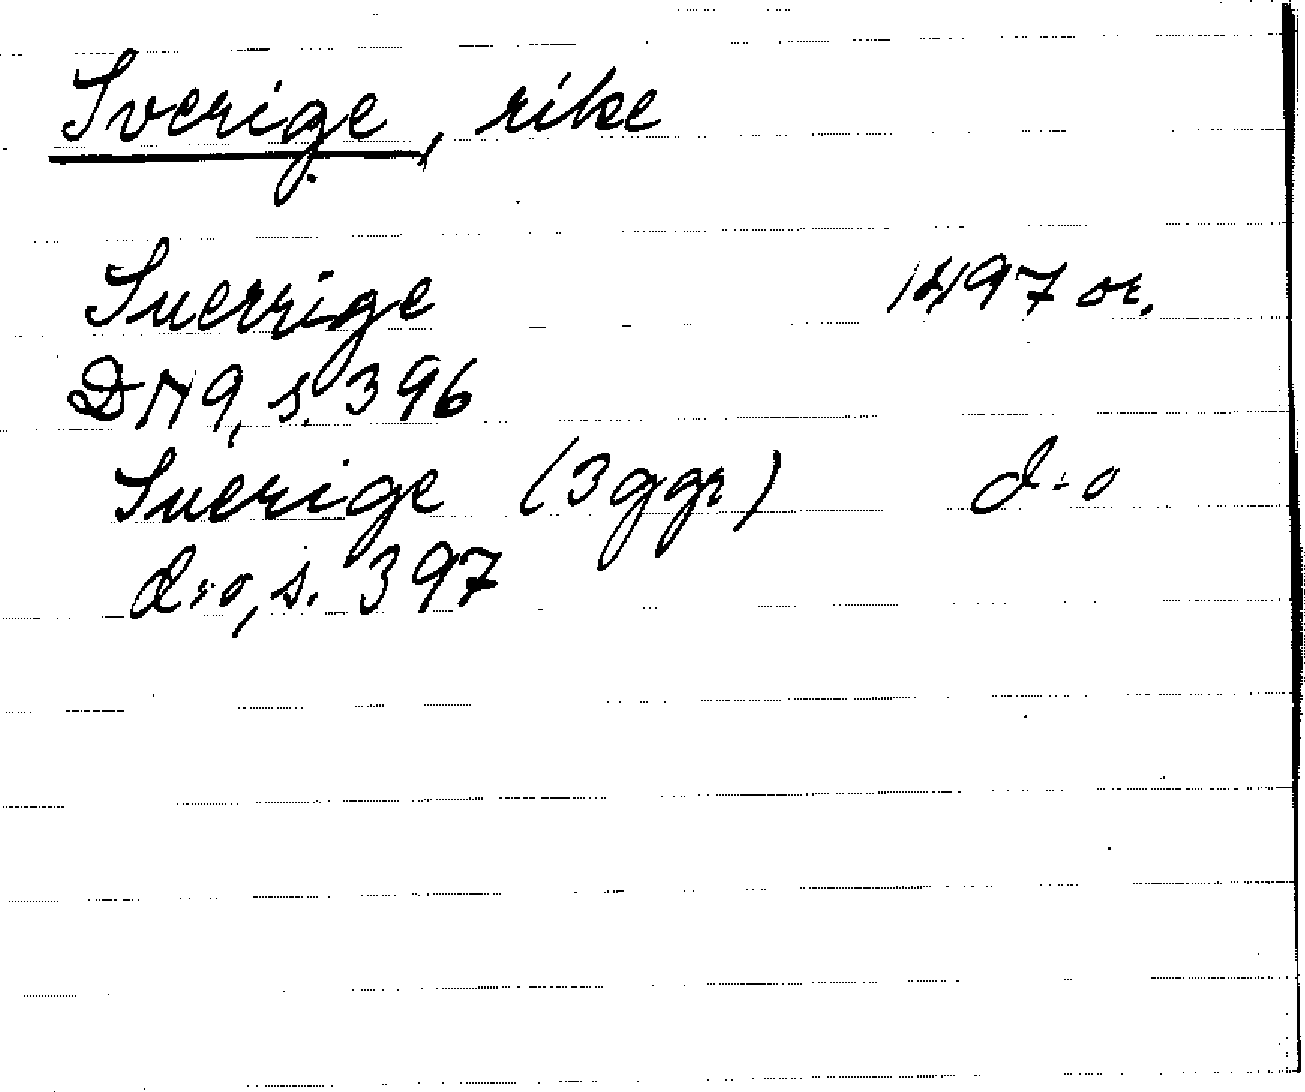 Sverige, rike
Suerrige 1497 or.
DN 9, s. 396
Suerige (3 ggr) d:o
d:o, s. 397